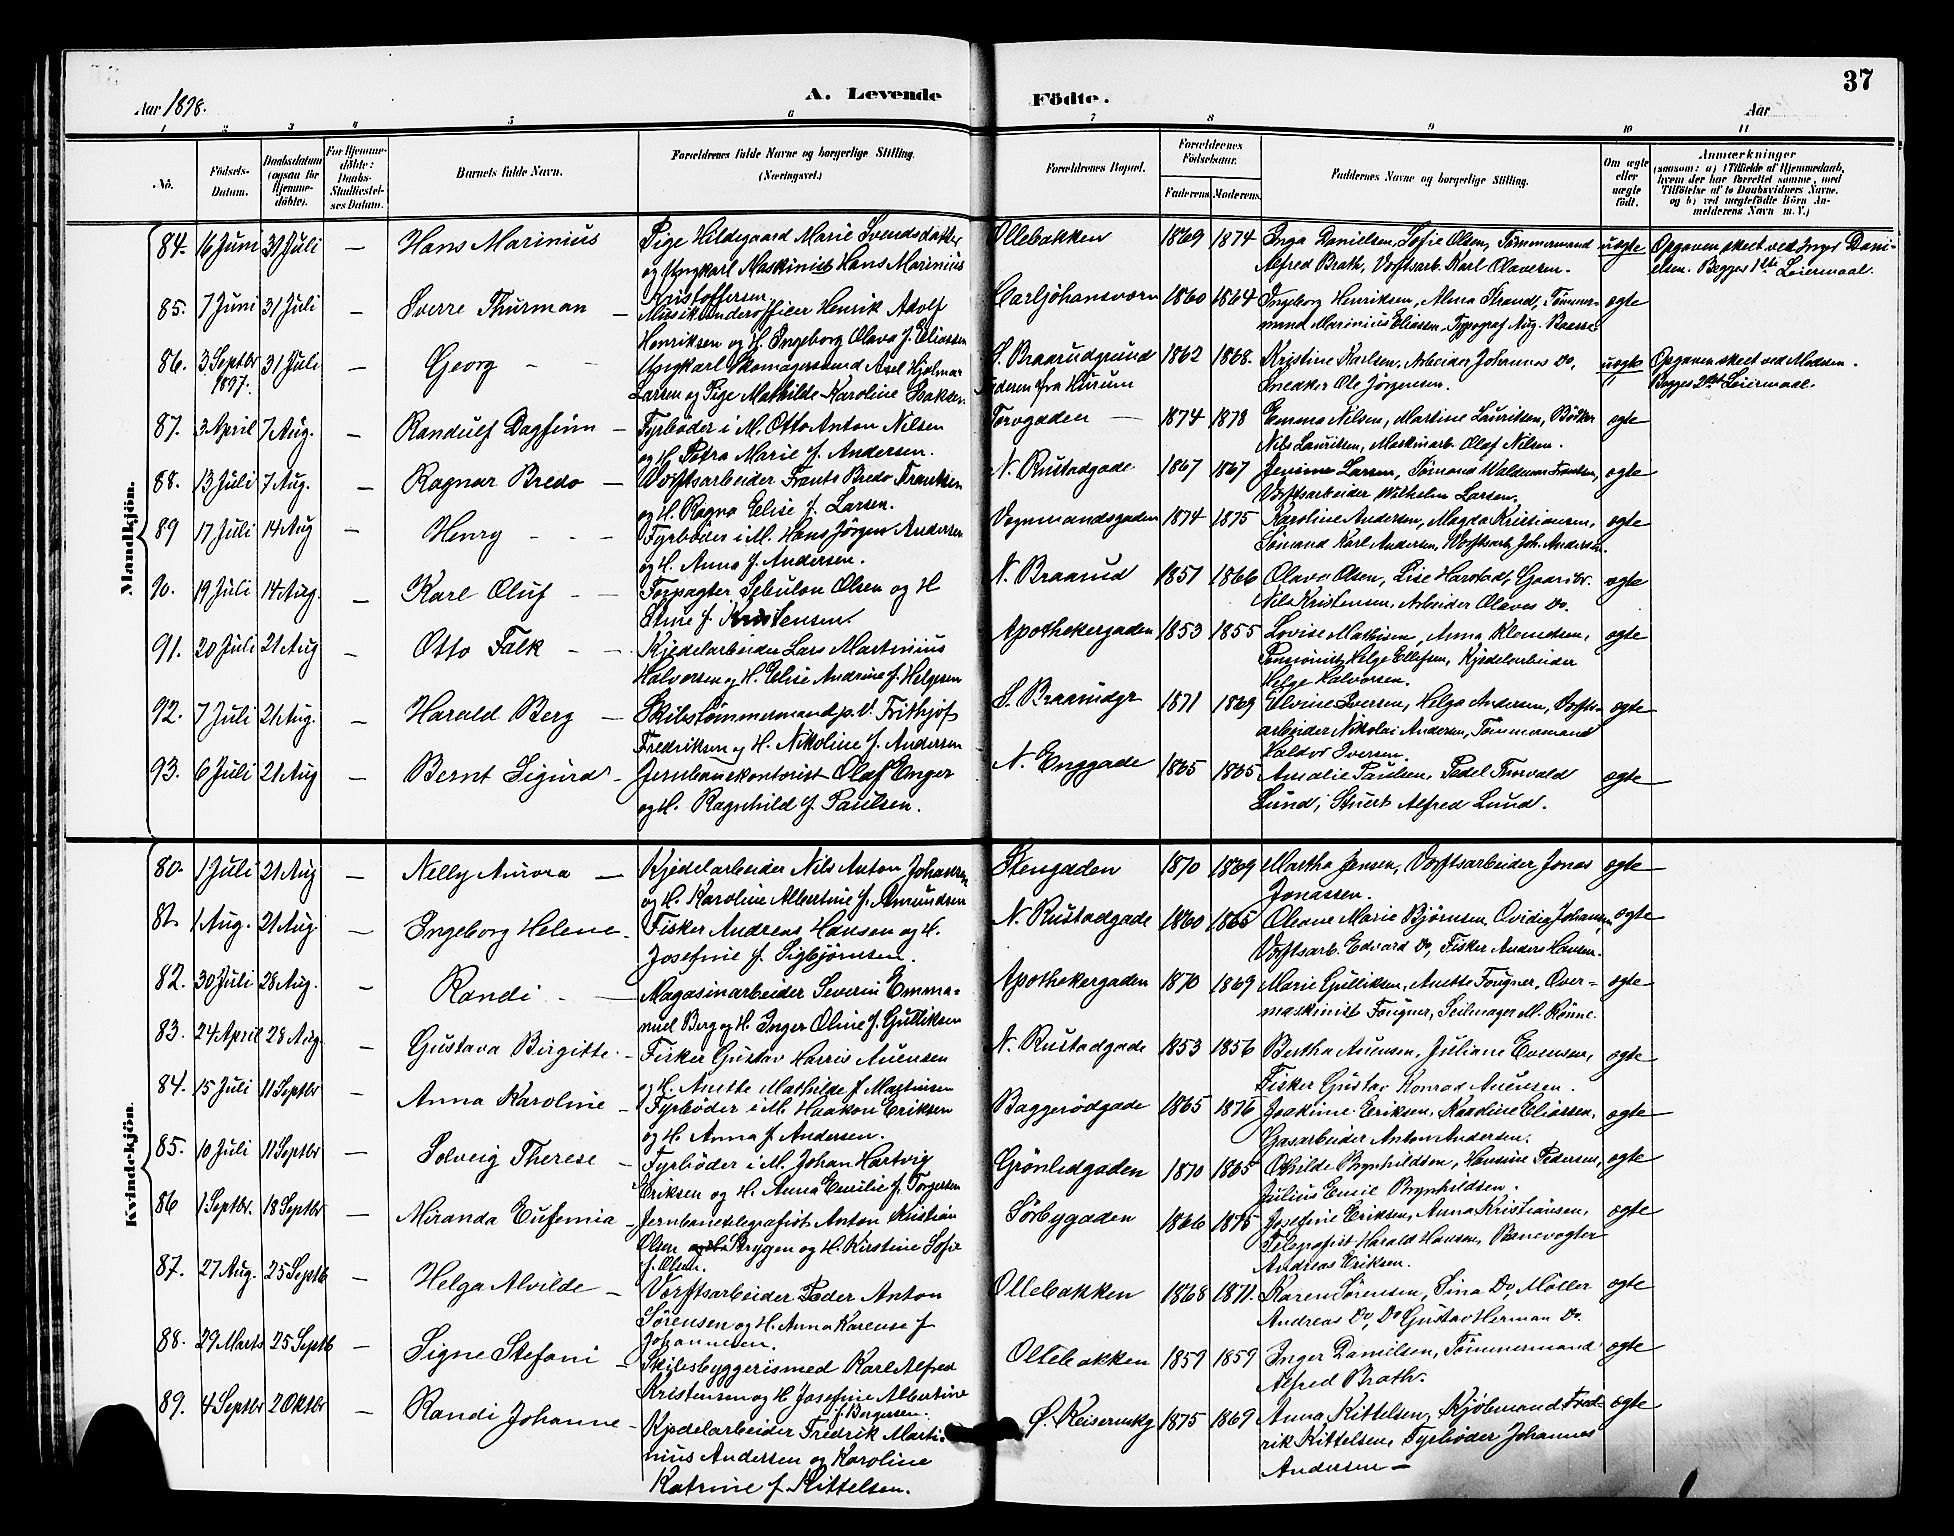 37
Aar 1898.
A. Levende Födte.
Aar
1 2 3 4 5 6 7 8 9 10 11
No.
Födsels-Datum.
Daabsdatum (ogsaa for Hjemmedöbte).
For Hjemmedöbte: Daabs-Stadfæstelsses Datum.
Barnets fulde Navn.
Forældrenes fulde Navne og borgerlige Stilling. (Næringsvei.)
Forældrenes Bopæl.
Forældrenes Födselsaar.
Faderens Moderens
Faddernes Navne og borgerlige Stilling.
Om ægte eller uægte födt.
Anmærkninger
(saasom: a) i Tilfælde af Hjemmedaab,
hvem der har forrettet samme, med
Tilföielse af to Daabsvidners Navne.
og b) ved uægtefödte Börn An-
melderens Navn m. V.)
Mandkjön.
84. 16 Juni 31 Juli — Hans Marinius Pige Hildegaard Marie Svendsdatter Ollebakken 1869 1874 Inga Danielsen, Sofie Olsen, Tømmermand uægte Opgaven skeet ved Inger Dani-
og Ungkarl Maskinist Hans Marinius Alfred Brath, Værftsarb. Karl Olavesen. elsen. Begges 1ste Leiermaal.
Kristoffersen
85. 7 Juni 31 Juli — Sverre Thurman — Musikunderofficer Henrik Adolf Carljohansværn 1860 1864 Ingeborg Henriksen, Alma Strand, Tømmer- ægte
Henriksen og H. Ingeborg Olava f. Eliassen mand Marinius Eliassen, Typograf Aug. Baasse
86. 3 Septbr 1897. 31 Juli — Georg - - Ungkarl Skomagersvend Axel Hjalmar S. Braarudgrund 1862 1868. Kristine Karlsen, Arbeider Johannes Do, uægte Opgaven skeet ved Modren.
Larsen og Pige Mathilde Karoline Isaksen Faderen fra Hurum Snedker Ole Jørgensen. Begges 2det Leiermaal.
87. 3 April 7 Aug. — Randulf Dagfinn — Fyrbøder i M. Otto Anton Nilsen Torvgaden — 1874 1878 Emma Nilsen, Martine Lauritsen, Bødker ægte
og H. Petra Marie f. Andersen. Nils Lauritsen, Maskinarb. Olaf Nilsen.
88. 13 Juli 7 Aug. — Ragnar Bredo — Værftsarbeider Frants Bredo Frantsen N. Rustadgade 1867 1867 Jensine Larsen, Sømand Waldemar Frantsen, ægte
og H. Ragna Elise f. Larsen. Værftsarbeider Wilhelm Larsen.
89 17 Juli 14 Aug — Henry - - - Fyrbøder i M. Hans Jørgen Andersen Vognmandsgaden 1874 1875 Karoline Andersen, Magda Kristiansen, ægte
og H. Anna f. Andersen. Sømand Karl Andersen, Værftsarb. Joh. Andersen.
90. 19 Juli 14 Aug. — Karl Oluf - — Forpagter Sebulon Olsen og H N. Braarud 1851 1866 Olava Olsen, Lise Harstad, Gaardbr. ægte
Stine f. Kristensen. Nils Kristensen, Arbeider Olaves Do.
91. 20 Juli 21 Aug — Otto Falk - — Kjedelarbeider Lars Martinius Apothekergaden 1853 1855 Lovise Mathisen, Anna Klemdsen, ægte
Halvorsen og H. Elise Andrine f. Helgesen Pensionist Helge Ellefsen, Kjedelarbeider
Helge Halvorsen.
92. 7 Juli 21 Aug. — Harald Berg — Skibstømmermand p. V. Frithjof S. Braarudgr 1871 1869 Elvine Iversen, Helga Andersen, Værfts- ægte
Fredriksen og H. Nikoline f. Andersen arbeider Nikolai Andersen, Tømmermand
Haldor Iversen.
93. 6 Juli 21 Aug — Bernt Sigurd - Jernbanekontorist Olaf Enger N. Enggade 1865 1865 Amalie Paulsen, Padel Thorvald ægte
og H. Ragnhild f. Paulsen. Lund, Stuert Alfred Lund.
Kvindekjön.
80. 1 Juli 21 Aug — Nelly Aurora — Kjedelarbeider Nils Anton Johansen Stengaden 1870 1869 Martha Jensen, Værftsarbeider Jonas ægte
og H. Karoline Albertine f. Amundsen Jonassen.
81. 1 Aug. 21 Aug. — Ingeborg Helene. Fisker Andreas Hansen og H. N. Rustadgade 1860 1865 Oleane Marie Bjørnsen, Ovidia Johansen, ægte
Josefine f. Sigbjørnsen. Værftsarb. Edvard Do, Fisker Anders Hansen.
82. 30 Juli 28 Aug. — Randi - — Magasinarbeider Severin Emma= Apothekergaden 1870 1869 Marie Gulliksen, Anette Fougner, Over= ægte
nuel Berg og H. Inger Oline f. Gulliksen maskinist Fougner, Seilmager M. Rønne.
83. 24 April 28 Aug. — Gustava Birgitte. — Fisker Gustav Harris Auensen N. Rustadgade 1853 1856 Bertha Auensen, Juliane Evensen, ægte
og H. Anette Mathilde f. Martinsen Fisker Gustav Konrad Auensen.
84. 15 Juli 11 Septbr — Anna Karoline — Fyrbøder i M. Haakon Eriksen Baggerødgade 1865 1876 Joakime Eriksen, Karoline Eliassen, ægte
og H. Anna f. Andersen. Gasarbeider Anton Andersen.
85. 10 Juli 11 Septbr — Solveig Therese — Fyrbøder i M. Johan Hartvig Grønlidgaden 1870 1865 Othilde Brynhildsen, Hansine Pedersen, ægte
Eriksen og H. Anna Emilie f. Torgersen Julius Emil Brynhildsen.
86 1 Septbr. 18 Septbr — Miranda Eufemia — Jernbanetelegrafist Anton Kristian Sørbygaden 1866 1875 Josefine Eriksen, Anna Kristiansen, ægte
Olsen Strygen og H. Kirstine Sofie Telegrafist Harald Hansen, Banevogter
f. Olsen. Andreas Eriksen.
87. 27 Aug. 25 Septb — Helga Alvilde — Værftsarbeider Peder Anton Ollebakken 1868 1871. Karen Sørensen, Sina Do, Møller ægte
Sørensen og H. Anna Karense f Andreas Do, Do Gustav Herman Do.
Johannesen.
88. 29 Marts 25 Septb — Signe Stefani — Skibsbyggerismed Karl Alfred Ollebakken 1857 1859 Inger Danielsen, Tømmermand ægte
Kristensen og H. Josefine Albertine Alfred Brath.
f. Børgersen.
89. 4 Septbr 2 Oktbr — Randi Johanne — Kjedelarbeider Fredrik Marti- Ø. Keiserinkg 1875 1869 Anna Kittelsen, Kjøbmand Fred- ægte
nius Andersen og Karoline rik Kittelsen, Fyrbøder Johannes
Katrine f. Kittelsen. Andersen —